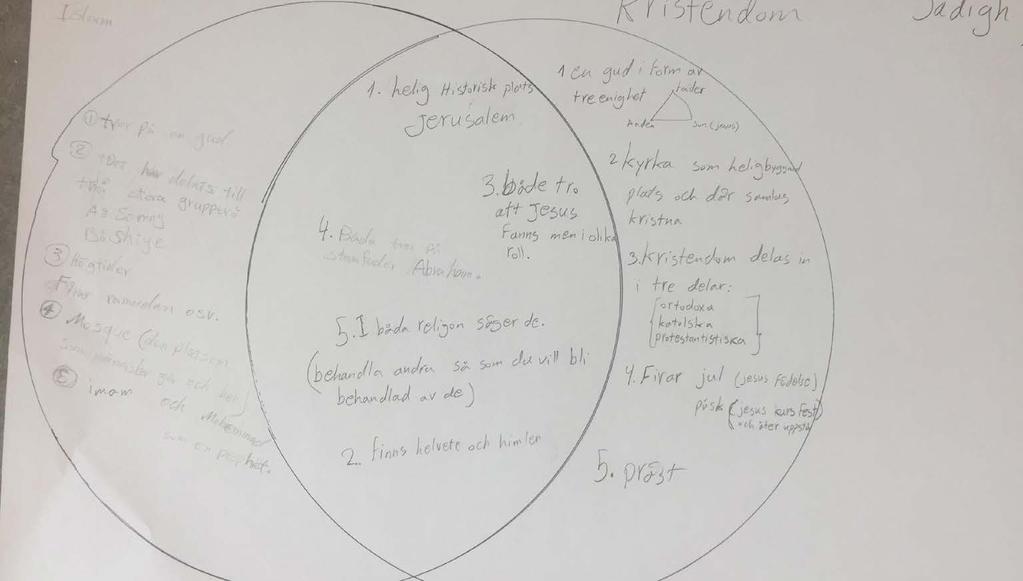 Islam
Kristendom
Jadigh
① tror på en gud
② Det har delats till
två stora grupper
A: Sonny
B: Shiye
③ högtider
Firar ramandan osv.
④ Mosque (den platsen
som människor går och ber)
⑤ imam
och Mohammad
som en prophet.
1. helig Historisk plats
jerusalem
3. både tro
att Jesus
Fanns men i olika
roll.
4. Båda tror på
stamfader Abraham.
5. I båda religon säger de.
(behandla andra så som du vill bli
behandlad av de)
2. finns helvete och himlen
1 en gud i form av
treenighet
fader
Anden
Sun (jesus)
2 kyrka som helig byggnad
plats och där samlas
kristna
3. Kristendom delas in
i tre delar:
ortodoxa
katolska
protestantistiska
4. Firar jul (jesus födelse)
påsk (jesus kurs fest)
och åter uppstå
5. präst